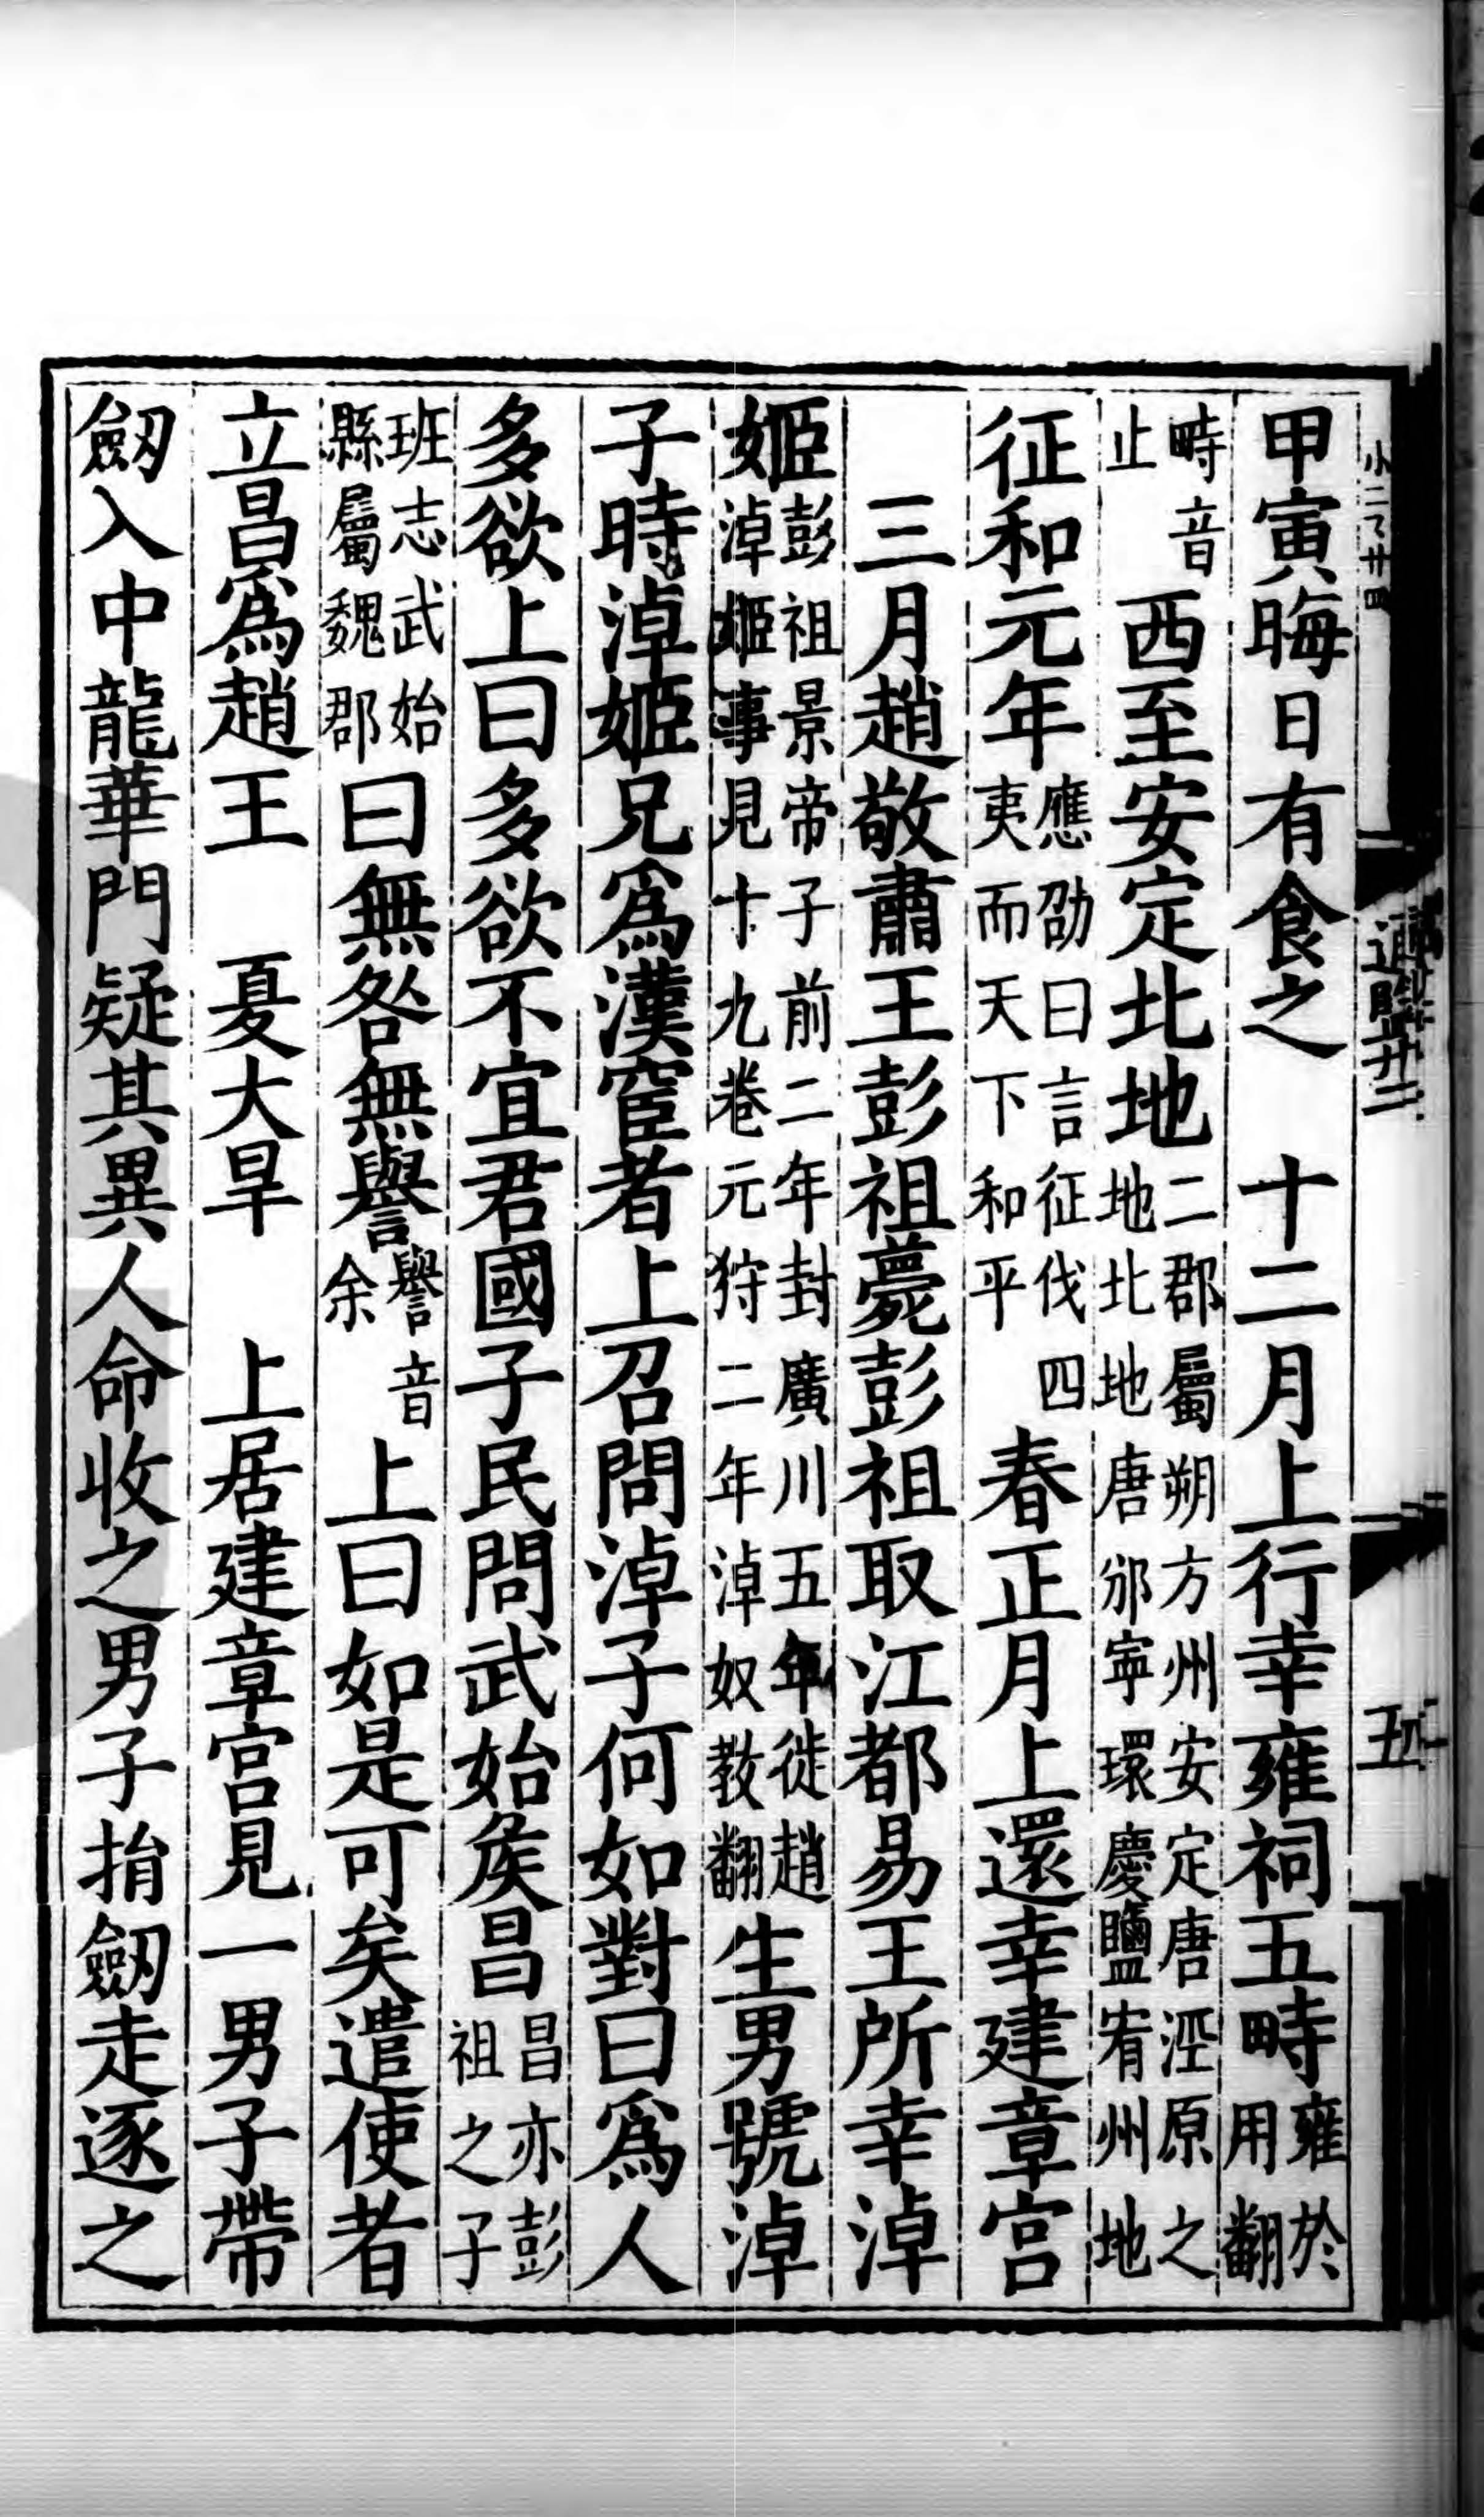 甲寅晦日有食之　十二月上行幸雍祠五畤雍於用翻
畤音止西至安定北地二郡屬朔方州安定唐涇原之地北地唐邠寧環慶鹽宥州地
征和元年應劭曰言征伐四夷而天下和平春正月上還幸建章宮
三月趙敬肅王彭祖薨彭祖取江都易王所幸淖
姬彭祖景帝子前二年封廣川五年徙趙淖姬事見十九卷元狩二年淖奴敎翻生男號淖
子時淖姬兄爲漢宦者上召問淖子何如對曰爲人
多欲上曰多欲不宜君國子民問武始矦昌昌亦彭祖之子
班志武始縣屬魏郡曰無咎無譽譽音余上曰如是可矣遣使者
立昌爲趙王　夏大旱　上居建章宮見一男子帶
劒入中龍華門疑其異人命收之男子捐劒走逐之